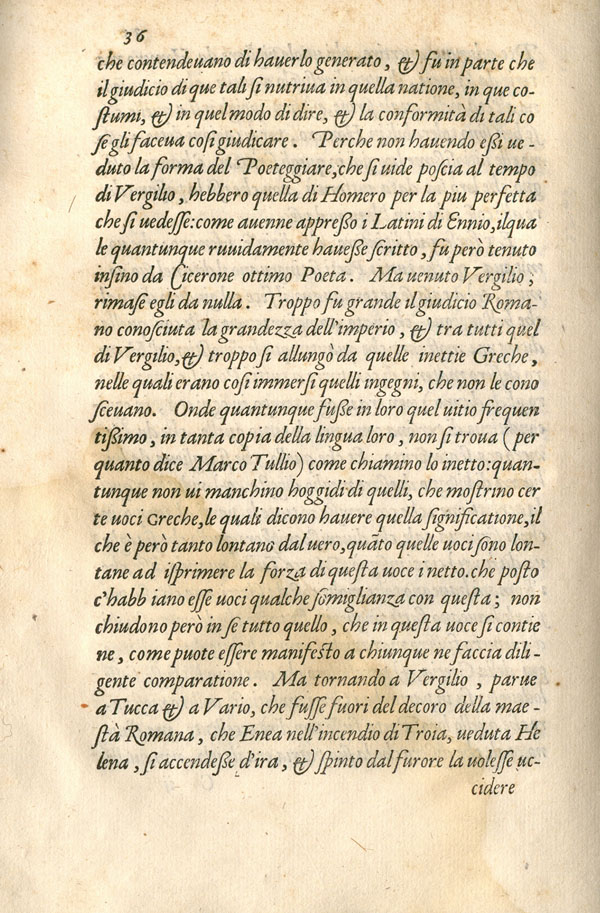 36
che contendeuano di hauerlo generato, & fu in parte che
il giudicio di que tali si nutriua in quella natione, in que co-
stumi, & in quel modo di dire, & la conformità di tali co
se gli faceua cosi giudicare. Perche non hauendo eßi ue-
duto la forma del Poeteggiare, che si uide poscia al tempo
di Vergilio, hebbero quella di Homero per la piu perfetta
che si uedesse: come auenne appreßo i Latini di Ennio, ilqua
le quantunque ruuidamente haueße scritto, fu però tenuto
insino da Cicerone ottimo Poeta. Ma uenuto Vergilio,
rimase egli da nulla. Troppo fu grande il giudicio Roma-
no conosciuta la grandezza dell'imperio, & tra tutti quel
di Vergilio, & troppo si allungò da quelle inettie Greche,
nelle quali erano cosi immersi quelli ingegni, che non le cono
sceuano. Onde quantunque fuße in loro quel uitio frequen
tißimo, in tanta copia della lingua loro, non si troua (per
quanto dice Marco Tullio) come chiamino lo inetto: quan-
tunque non ui manchino hoggidi di quelli, che mostrino cer
te uoci Greche, le quali dicono hauere quella significatione, il
che è però tanto lontano dal uero, quãto quelle uoci sono lon-
tane ad isprimere la forza di questa uoce inetto. che posto
c'habb iano esse uoci qualche somiglianza con questa; non
chiudono però in se tutto quello, che in questa uoce si contie
ne, come puote essere manifesto a chiunque ne faccia dili-
gente comparatione. Ma tornando a Vergilio, parue
a Tucca & a Vario, che fusse fuori del decoro della mae-
stà Romana, che Enea nell'incendio di Troia, ueduta He
lena, si accendeße d'ira, & spinto dal furore la uolesse uc-
cidere